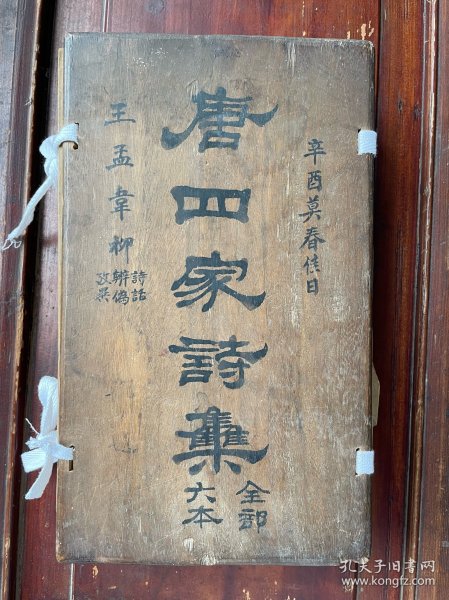 辛酉莫春佳日
唐四家詩集
全部
六本
王孟韋柳
詩話
辨偽
攷異
孔夫子旧书网
www.kongfz.com